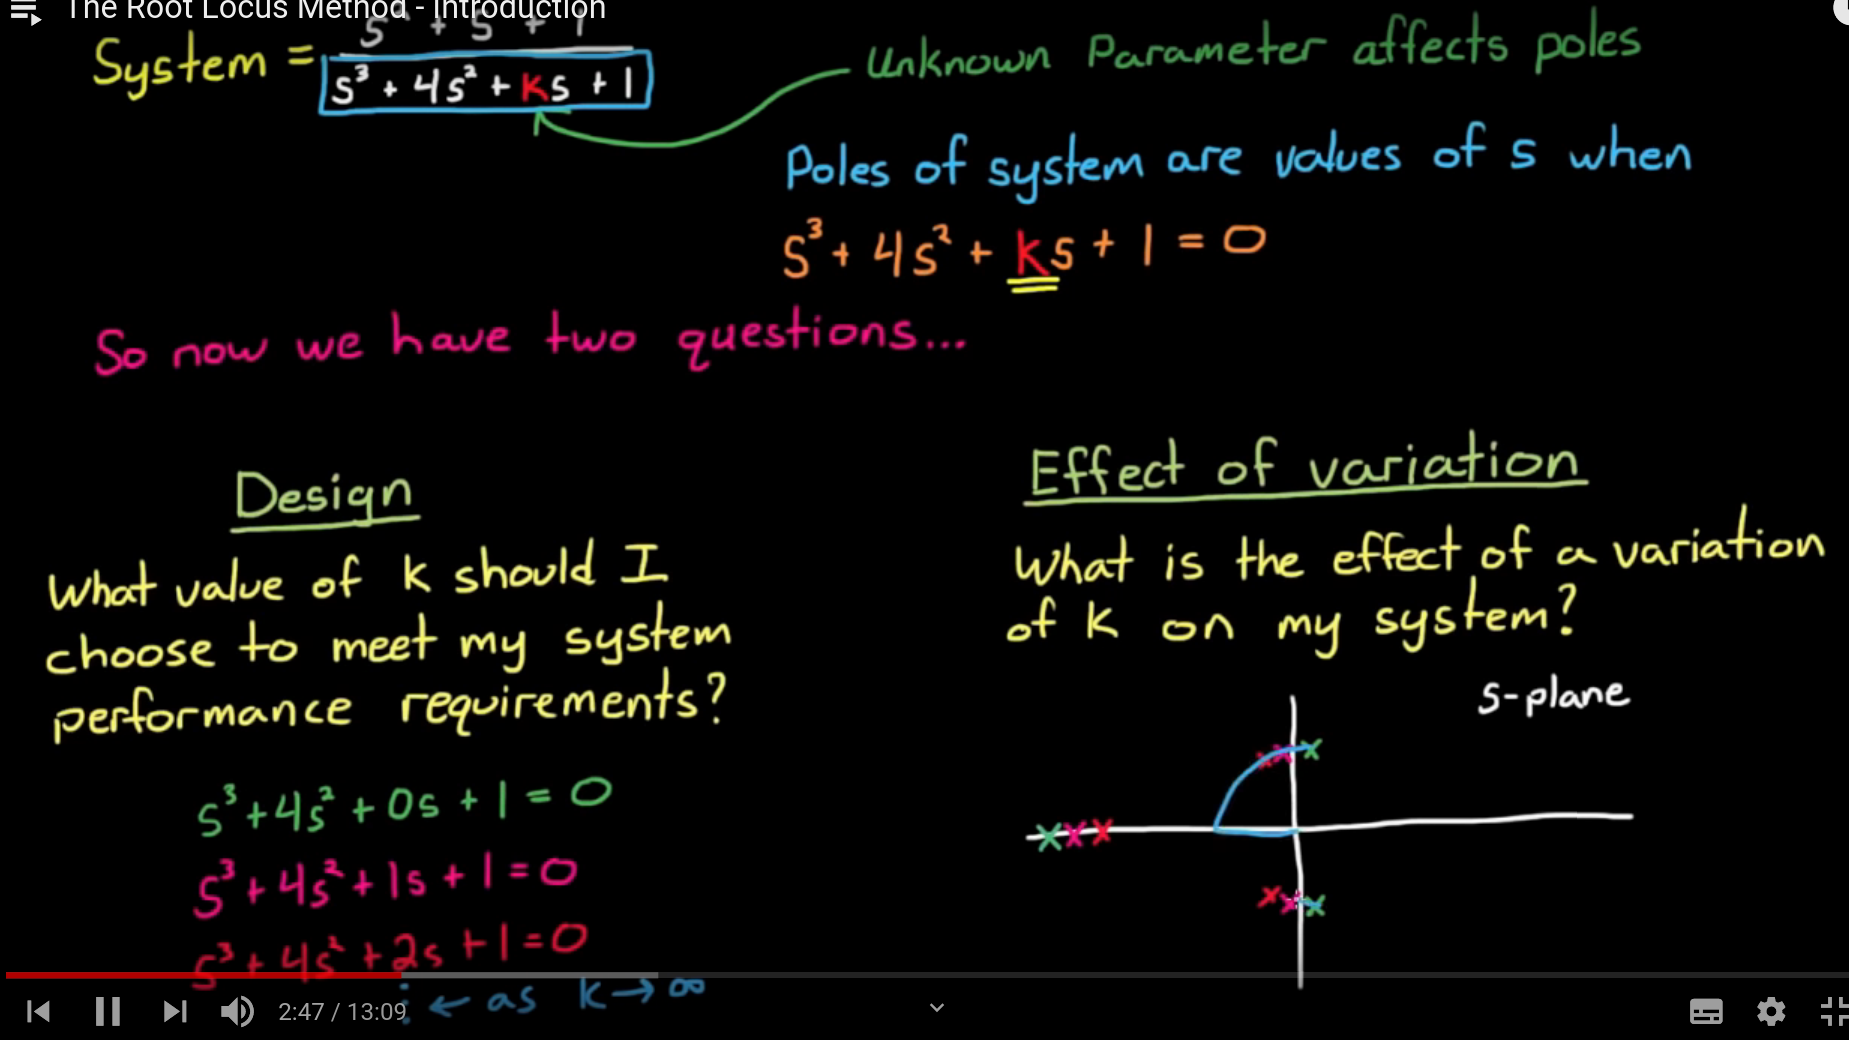 The Root Locus Method - Introduction
s² + s + 1
System =
s³ + 4s² + ks + 1
Unknown Parameter affects poles
Poles of system are values of s when
s³ + 4s² + ks + 1 = 0
So now we have two questions...
Design
What value of k should I
choose to meet my system
performance requirements?
s³ + 4s² + 0s + 1 = 0
s³ + 4s² + 1s + 1 = 0
s³ + 4s² + 2s + 1 = 0
⋮ ← as k → ∞
Effect of variation
What is the effect of a variation
of k on my system?
s-plane
2:47 / 13:09